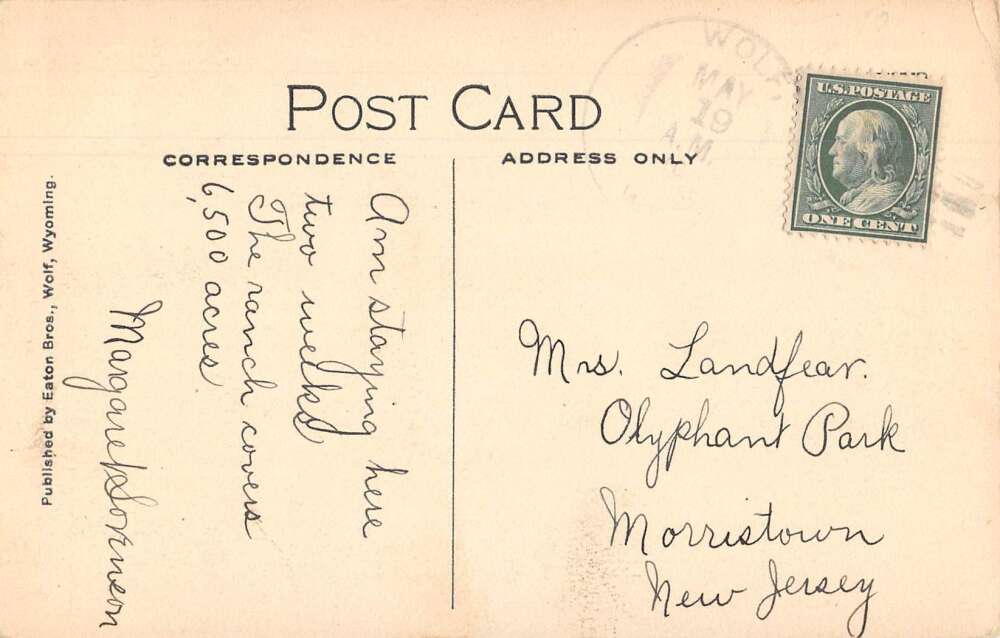 POST CARD
CORRESPONDENCE
ADDRESS ONLY
WOLF,
MAY
19
A.M.
U.S. POSTAGE
ONE CENT
Am staying here
two weeks
The ranch covers
6,500 acres.
Margaret
Mrs. Landfear.
Olyphant Park
Morristown
New Jersey
Published by Eaton Bros., Wolf, Wyoming.